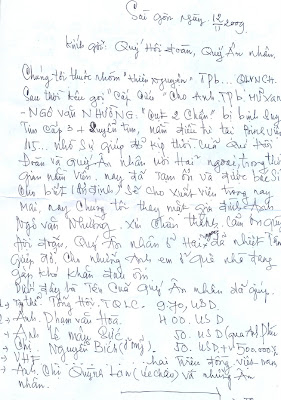 Sài gòn ngày 12/11/2009.
Kính gởi: Quý Hội đoàn, Quý Ân nhân.
Chúng tôi thuộc nhóm "thiện nguyện" TPB... QLVNCH.
Sau thời kêu gọi "Cấp Cứu" Cho Anh TPB.
- NGÔ VĂN NHƯỜNG. "Cụt 2 Chân" bị bệnh
Tim Cấp 3 + Suyễn, nằm điều trị tại Bịnh viện
115... nhờ sự giúp đỡ kịp thời của quí Hội
Đoàn và Quý Ân nhân nơi Hải ngoại, trong thời
gian nằm viện, nay đã tạm ổn và được Bác Sĩ
cho biết sẽ cho xuất viện trong nay
Mai, nay chúng tôi thay mặt gia đình Anh
Ngô văn Nhường. Xin chân thành cảm ơn Quý
Hội đoàn, Quý Ân nhân ở Hải ngoại đã nhiệt tình
giúp đỡ, cho những Anh em ở quê nhà đang
gặp khó khăn đau ốm
Dưới đây là tên của Quý Ân nhân đã giúp.
Tổng Hội. TQLC. 970. USD.
2 - Anh. Phạm văn Hòa. 400. USD
Anh Lê 50. USD
Chị. Nguyễn Bích 50. USD + 500.000đ
VHF hai triệu đồng việt nam
Anh. Chị Quỳnh Lan (Úc châu) và những Ân
nhân.